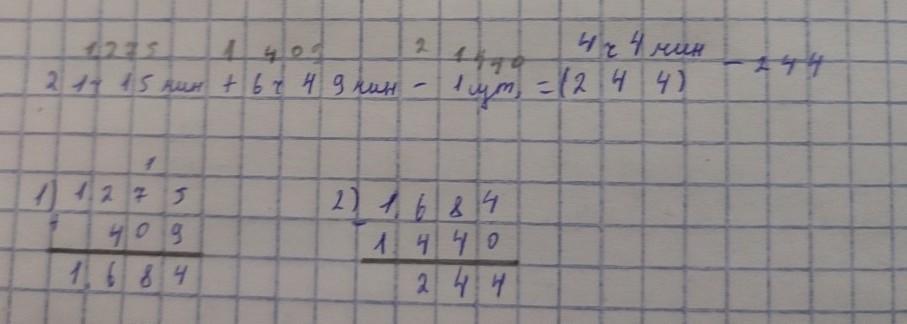 1275 1 409 2 1440 4ч 4 мин
21ч 15 мин + 6ч 49 мин - 1 сут, = (2 4 4) - 244
1
1) 1 2 7 5 2) 1 6 8 4
+ 4 0 9 - 1 4 4 0
1 6 8 4 2 4 4